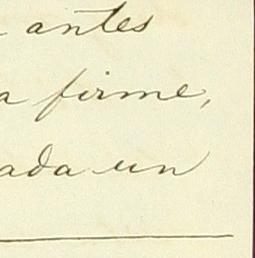 antes
a firme,
ada un